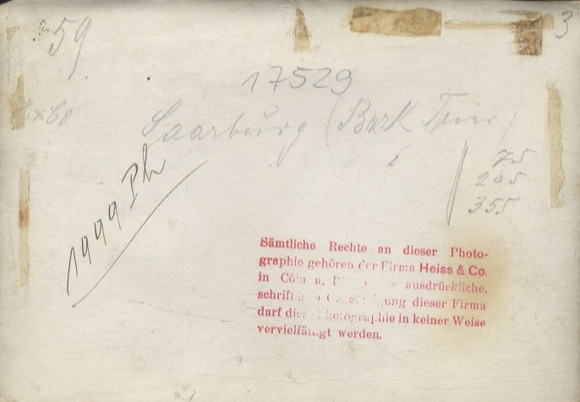 59
3
17529
Saarburg (Bzrk Trier)
75
205
355
1999 Ph
Sämtliche Rechte an dieser Photo-
graphie gehören der Firma Heiss & Co.
in Cöln a. ausdrückliche,
dieser Firma
darf Photographie in keiner Weise
vervielfältigt werden.